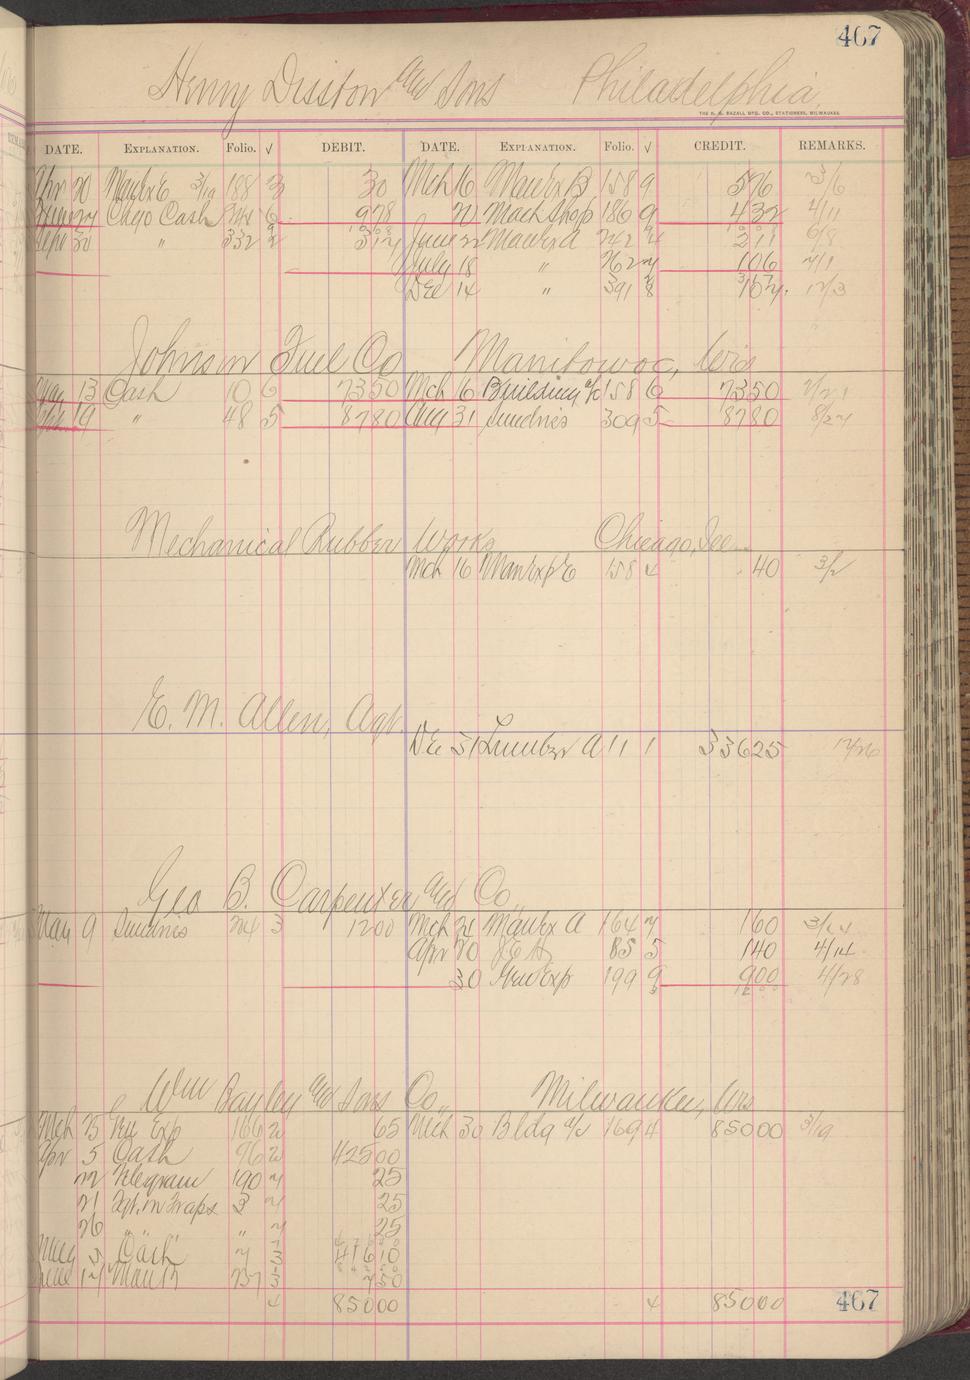 467
Henry Disston and Sons Philadelphia,
THE H. H. RAZALL MFG. CO., STATIONERS, MILWAUKEE.
DATE. EXPLANATION. Folio. √ DEBIT. DATE. EXPLANATION. Folio. √ CREDIT. REMARKS.
Apr 20 ManExE 3/19 188 3 30 Mch 16 ManEx B 158 9 576 3/6
Chgo Cash 6 978 21 Mach Shop 186 9 432 4/11
Sept 30 " 332 2 312 June 22 ManEx A 242 211 6/8
July 18 " 262 106 7/1
Dec 14 " 391 8 12/3
Johnson Fuel Co Manitowoc, Wis
May 13 Cash 10 6 7350 Mch 16 Building a/c 158 6 7350 2/21
19 " 48 5 8780 Aug 31 Sundries 309 5 8780 8/27
Mechanical Rubber Works Chicago, Ill
Mch 16 ManExp E 158 4 40 3/2
E. M. Allen, Agt.
Dec 31 Lumber A 11 1 33625 12/26
Geo B. Carpenter and Co.,
May 9 Sundries 3 1200 Mch 21 ManEx A 164 7 160
Apr 20 85 5 140 4/14
30 Exp 199 9 900 4/28
Wm Bayley and Sons Co., Milwaukee, Wis
Mch 25 Exp 166 2 65 Mch 30 Bldg a/c 169 4 85000 3/19
Apr 5 Cash 96 2 42500
22 Telegram 190 25
21 3 25
26 " " 25
May 3 Cash 3 41610
June 750
4 85000 4 85000
467